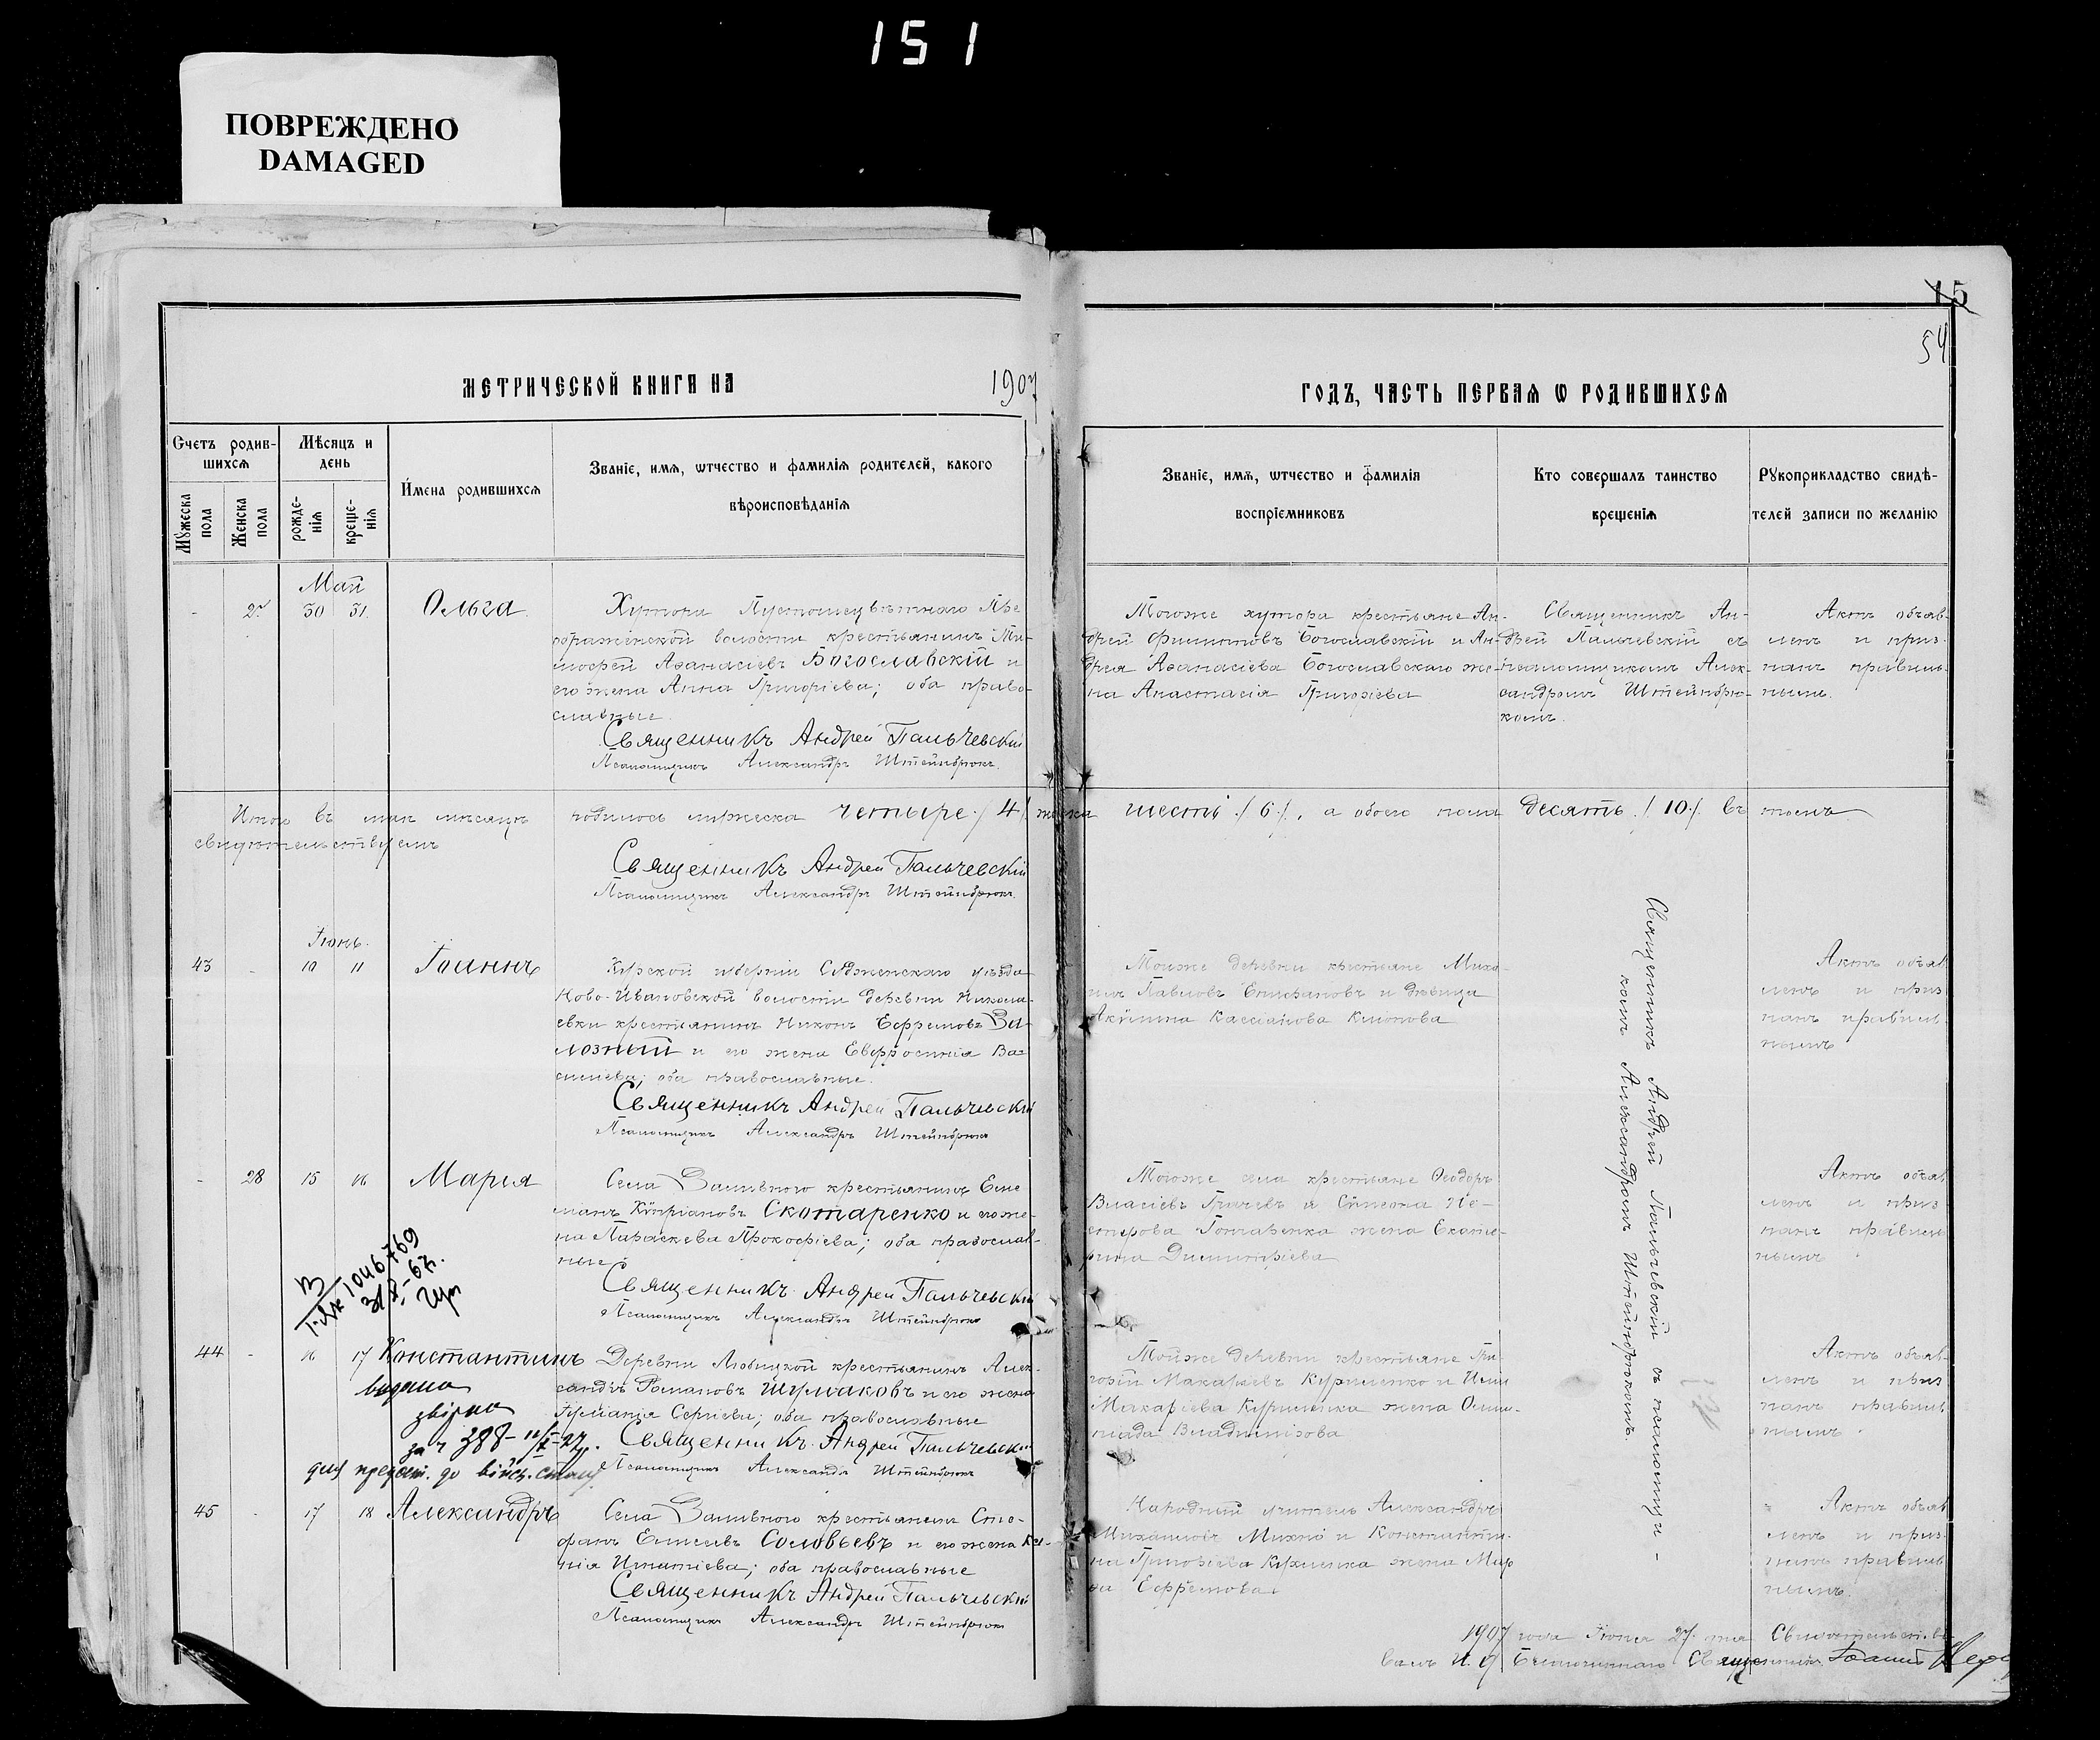 151
ПОВРЕЖДЕНО
DAMAGED
15
54
МЕТРИЧЕСКОЙ КНИГИ НА 1907
ГОДЪ, ЧАСТЬ ПЕРВАЯ Ѡ РОДИВШИХСЯ
Счетъ родив-
шихся
Мѣсяцъ и
день
Мꙋжеска
пола
Женска
пола
рожде-
нія
креще-
нія
Имена родившихся
Званіе, имя, ѡтчество и фамилія родителей, какого
вѣроисповѣданія
Званіе, имя, ѡтчество и фамилія
воспріемниковъ
Кто совершалъ таинство
крещенія
Рꙋкоприкладство свидѣ-
телей записи по желанію
Май
27 30 31. Ольга.
Хутора Пре-
ображенской волости крестьянинъ Ти-
мофей Аѳанасіевъ Богославскій и
его жена Анна Григоріева; оба право-
славные.
Священникъ Андрей Пальчевскій
Псаломщикъ Александръ Штейнбрюкъ.
Тогоже хутора крестьяне Ан-
дрей Филипповъ Богославскій и Ан-
дрея Аѳанасіева Богославскаго же-
на Анастасія Григоріева
Священникъ Ан-
дрей Пальчевскій съ
псаломщикомъ Алек-
сандромъ Штейнбрю-
комъ.
Актъ объяв-
ленъ и приз-
нанъ правиль-
нымъ.
Итого въ маѣ мѣсяцѣ родилось мужеска четыре /4/ женска шесть /6/, а обоего пола десять /10/. въ томъ
свидѣтельствуемъ
Священникъ Андрей Пальчевскій
Псаломщикъ Александръ Штейнбрюкъ.
Іюнь.
43 - 10 11 Іоаннъ
Курской губерніи Суджанскаго уѣзда
Ново-Ивановской волости деревни Никола-
евки крестьянинъ Никонъ Ефремовъ За-
лозный и его жена Евфросинія Ва-
силіева; оба православные.
Священникъ Андрей Пальчевскій
Псаломщикъ Александръ Штейнбрюкъ
Тойже деревни крестьяне Миха-
илъ Павловъ Епифановъ и дѣвица
Акулина Кассіанова Климова
Актъ объяв
ленъ и приз
нанъ правиль
нымъ
Священникъ Андрей Пальчевскій съ псаломщи-
комъ Александромъ Штейнбрюкомъ.
- 28 15 16 Марія
Села Заливного крестьянинъ Еме-
льянъ Кипріановъ Скотаренко и его же-
на Параскева Прокофіева; оба православ-
ные
Священникъ Андрей Пальчевскій
Псаломщикъ Александръ Штейнбрюкъ
Тогоже села крестьяне Ѳеодоръ
Власіевъ Грачевъ и Симеона Не-
стерова Гончаренка жена Екате-
рина Димитріева
Актъ объяв
ленъ и приз
нанъ правиль
нымъ
1046769
67.
44 - 16 17 Константинъ
видана
звірка
за ч 388
Деревни Любицкой крестьянинъ Алек-
сандръ Романовъ Шумаковъ и его жена
Сергіева; оба православные
Священникъ Андрей Пальчевскій
Псаломщикъ Александръ Штейнбрюкъ
Тойже деревни крестьяне Гри-
горій Макаріевъ Куриленко и
Макаріева Куриленка жена Олим-
піада Владимірова
Актъ объяв-
ленъ и приз
нанъ правиль
нымъ
45 - 17 18 Александръ
Села Заливного крестьянинъ Сте-
фанъ Елисеевъ Соловьевъ и его жена Ксе-
нія Игнатіева; оба православные
Священникъ Андрей Пальчевскій
Псаломщикъ Александръ Штейнбрюкъ
Народный учитель Александръ
Михайловъ Михно и Константи-
на Григоріева жена Мар
ѳа Ефремова
Актъ объяв
ленъ и приз-
нанъ правиль
нымъ.
1907 года Іюня 27 дня Свидѣтельство-
валъ И. д. Благочиннаго Священникъ Іоаннъ